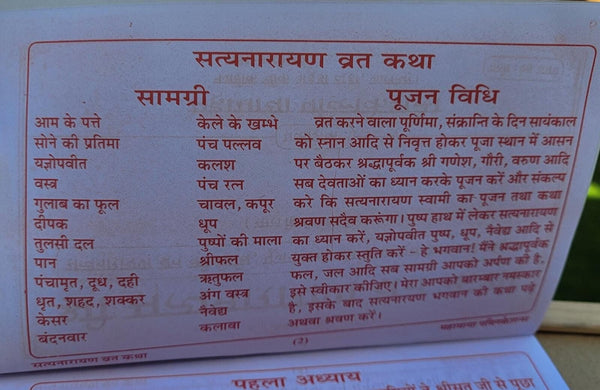 सत्यनारायण व्रत कथा
सामग्री
आम के पत्ते केले के खम्भे
सोने की प्रतिमा पंच पल्लव
यज्ञोपवीत कलश
वस्त्र पंच रत्न
गुलाब का फूल चावल, कपूर
दीपक धूप
तुलसी दल पुष्पों की माला
पान श्रीफल
पंचामृत, दूध, दही ऋतुफल
धृत, शहद, शक्कर अंग वस्त्र
केसर नैवेद्य
बंदनवार कलावा
पूजन विधि
व्रत करने वाला पूर्णिमा, संक्रान्ति के दिन सायंकाल
को स्नान आदि से निवृत्त होकर पूजा स्थान में आसन
पर बैठकर श्रद्धापूर्वक श्री गणेश, गौरी, वरुण आदि
सब देवताओं का ध्यान करके पूजन करें और संकल्प
करे कि सत्यनारायण स्वामी का पूजन तथा कथा
श्रवण सदैव करूंगा। पुष्प हाथ में लेकर सत्यनारायण
का ध्यान करें, यज्ञोपवीत पुष्प, धूप, नैवेद्य आदि से
युक्त होकर स्तुति करें - हे भगवान! मैंने श्रद्धापूर्वक
फल, जल आदि सब सामग्री आपको अर्पण की है.
इसे स्वीकार कीजिए। मेरा आपको बारम्बार नमस्कार
है, इसके बाद सत्यनारायण भगवान की कथा पढ़े
अथवा श्रवण करें।
सत्यनारायण व्रत कथा
(2)
महामाया पब्लिकेशन्स
पहला अध्याय